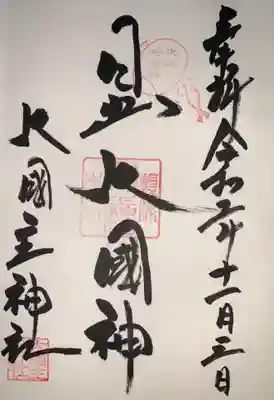 奉拝 令和二年十一月三日
日出大國神
大國主神社